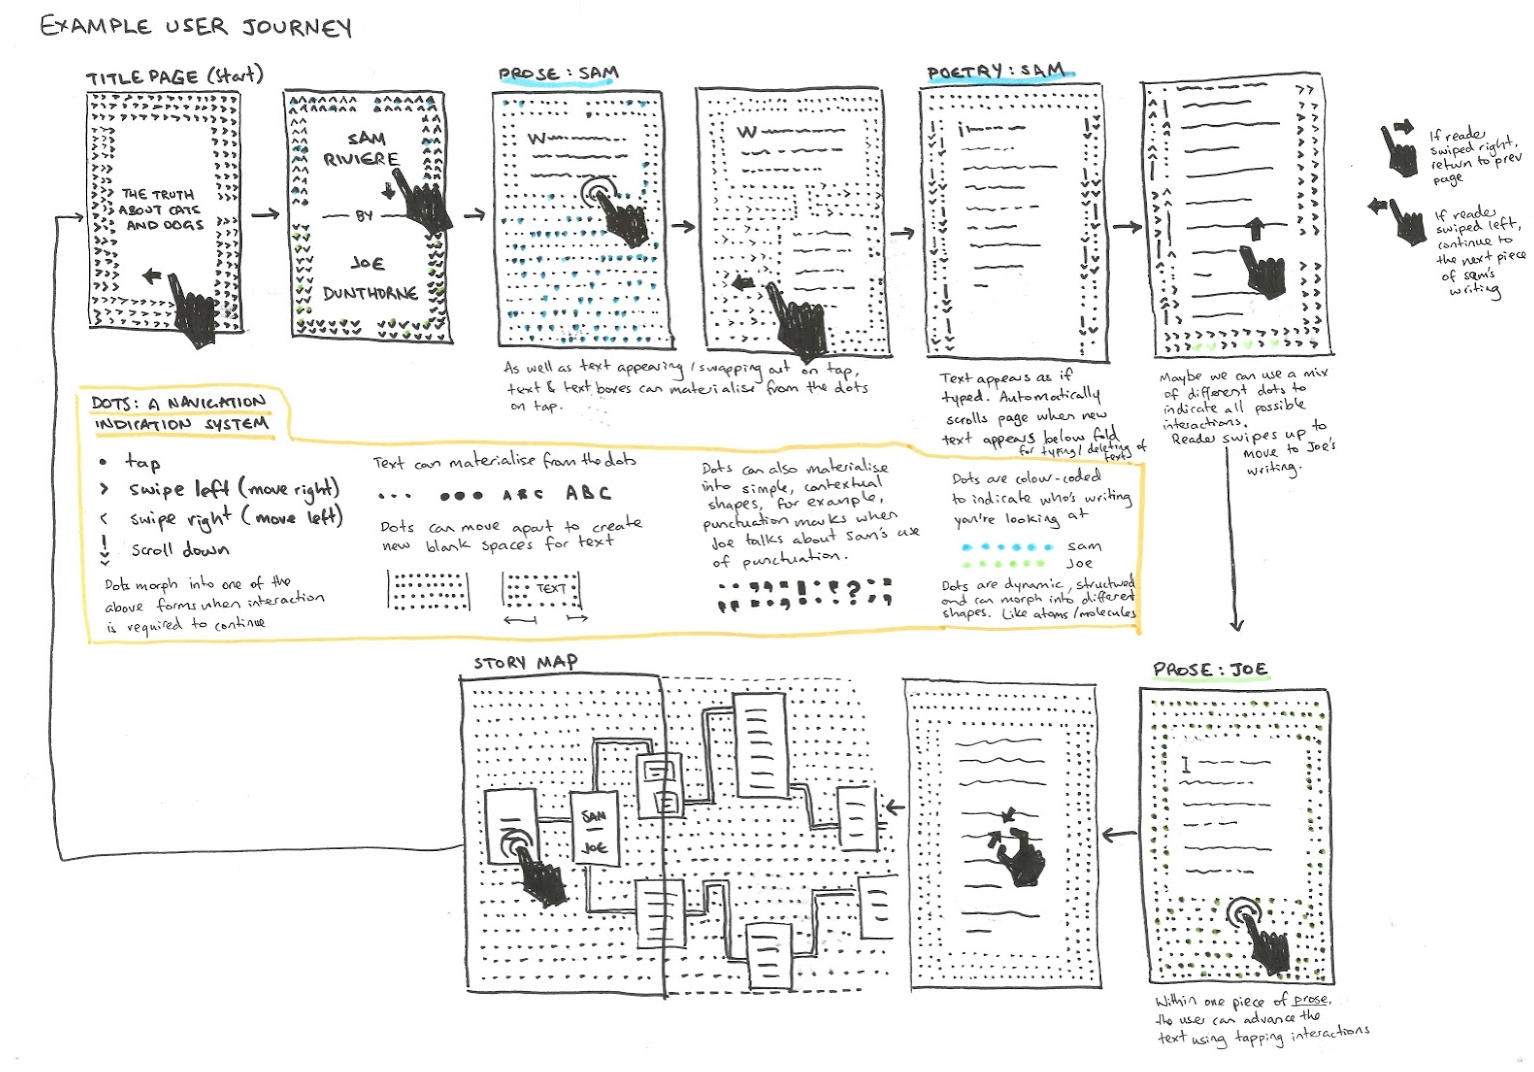 EXAMPLE USER JOURNEY
TITLE PAGE (Start)
THE TRUTH
ABOUT CATS
AND DOGS
SAM
RIVIERE
BY
JOE
DUNTHORNE
PROSE: SAM
W
W
As well as text appearing / swapping out on tap,
text & text boxes can materialise from the dots
on tap.
POETRY: SAM
i
Text appears as if
typed. Automatically
scrolls page when new
text appears below fold
for typing / deleting of
text
Maybe we can use a mix
of different dots to
indicate all possible
interactions.
Reader swipes up to
move to Joe's
writing.
If reader
swiped right,
return to prev
page
If reader
swiped left,
continue to
the next piece
of Sam's
writing
DOTS: A NAVIGATION
INDICATION SYSTEM
• tap
> swipe left (move right)
< swipe right (move left)
scroll down
Dots morph into one of the
above forms when interaction
is required to continue
Text can materialise from the dots
ABC ABC
Dots can move apart to create
new blank spaces for text
TEXT
Dots can also materialise
into simple, contextual
shapes, for example,
punctuation marks when
Joe talks about Sam's use
of punctuation.
Dots are colour-coded
to indicate who's writing
you're looking at
Sam
Joe
Dots are dynamic, structured
and can morph into different
shapes. Like atoms/molecules
STORY MAP
SAM
JOE
PROSE: JOE
I
Within one piece of prose,
the user can advance the
text using tapping interactions